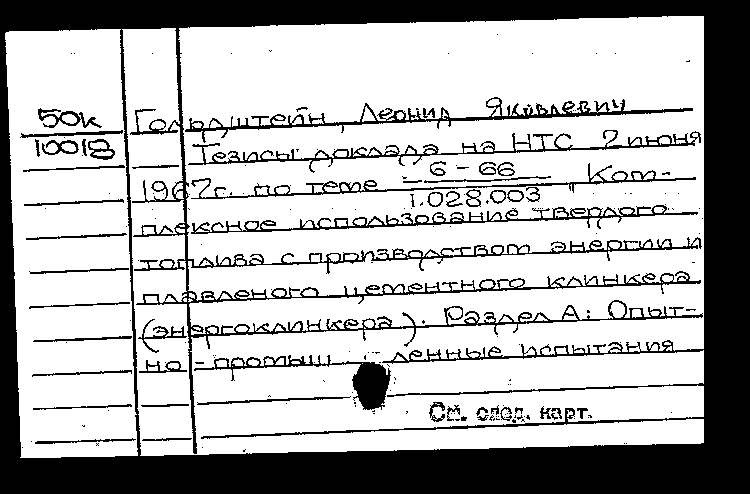 50к
10018
Гольдштейн, Леонид Яковлевич
Тезисы доклада на НТС 2 июня
1967г. по теме 6-66
1.028.003 "Ком-
плексное использование твердого
топлива с производством энергии и
плавленого цементного клинкера
(энергоклинкера). Раздел А: Опыт-
но-промышленные испытания
См. след. карт.